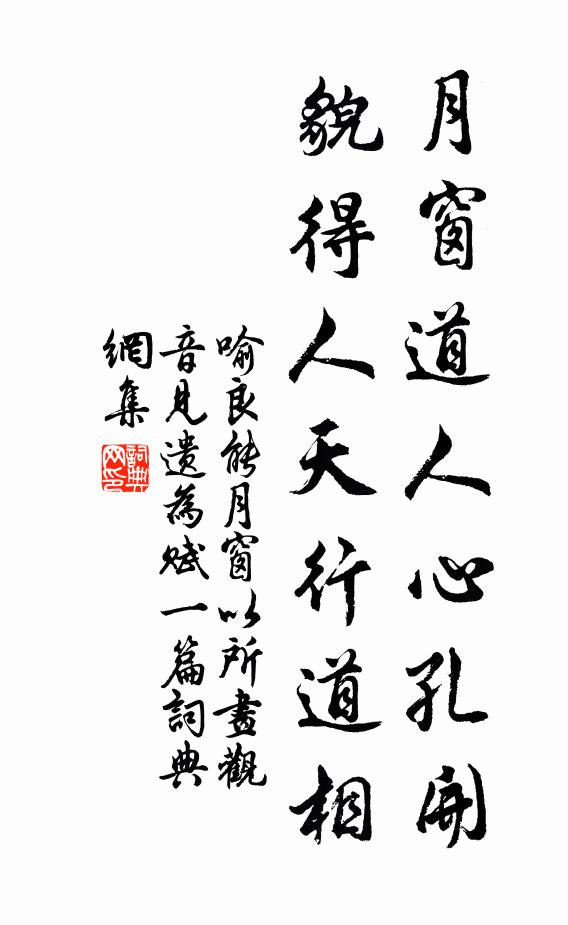 月窗道人心孔開
貌得人天行道相
喻良能月窗以所畫觀
音見遺為賦一篇詞典
網集
詞典
网印